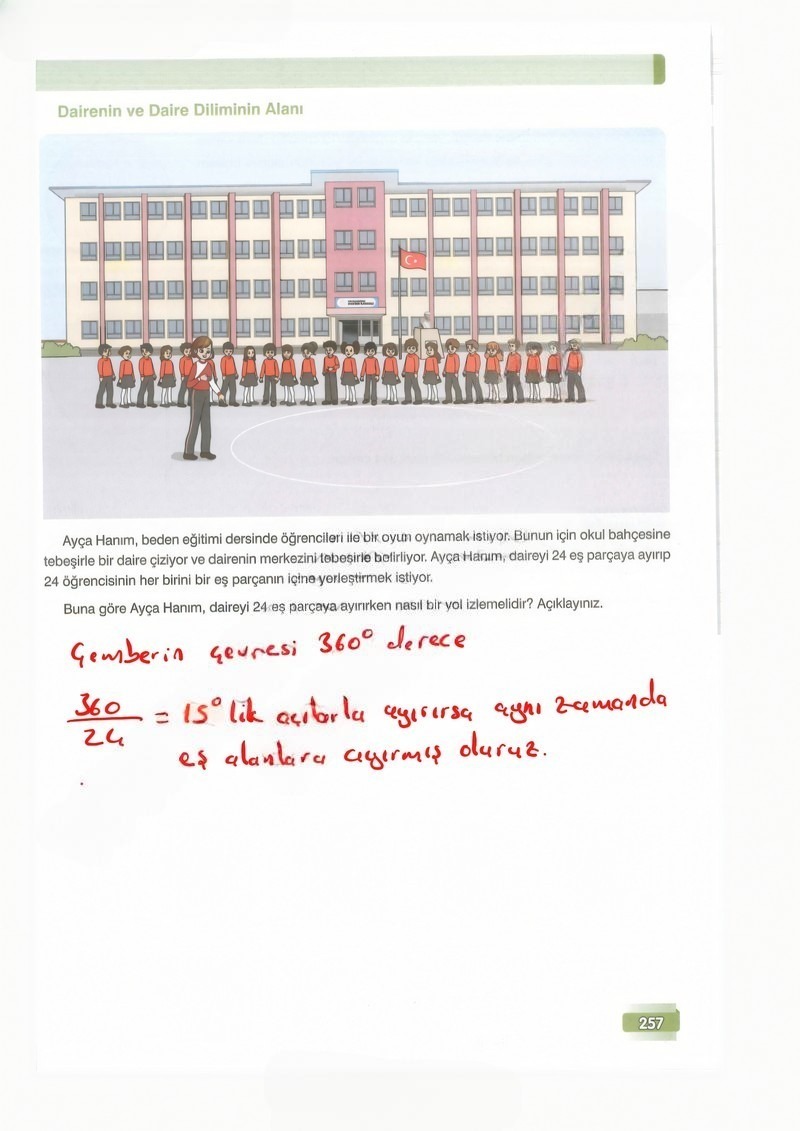 Dairenin ve Daire Diliminin Alanı
Ayça Hanım, beden eğitimi dersinde öğrencileri ile bir oyun oynamak istiyor. Bunun için okul bahçesine
tebeşirle bir daire çiziyor ve dairenin merkezini tebeşirle belirliyor. Ayça Hanım, daireyi 24 eş parçaya ayırıp
24 öğrencisinin her birini bir eş parçanın içine yerleştirmek istiyor.
Buna göre Ayça Hanım, daireyi 24 eş parçaya ayırırken nasıl bir yol izlemelidir? Açıklayınız.
Çemberin çevresi 360° derece
360
24
= 15° lik açılarla ayırırsa aynı zamanda
eş alanlara ayırmış oluruz.
257